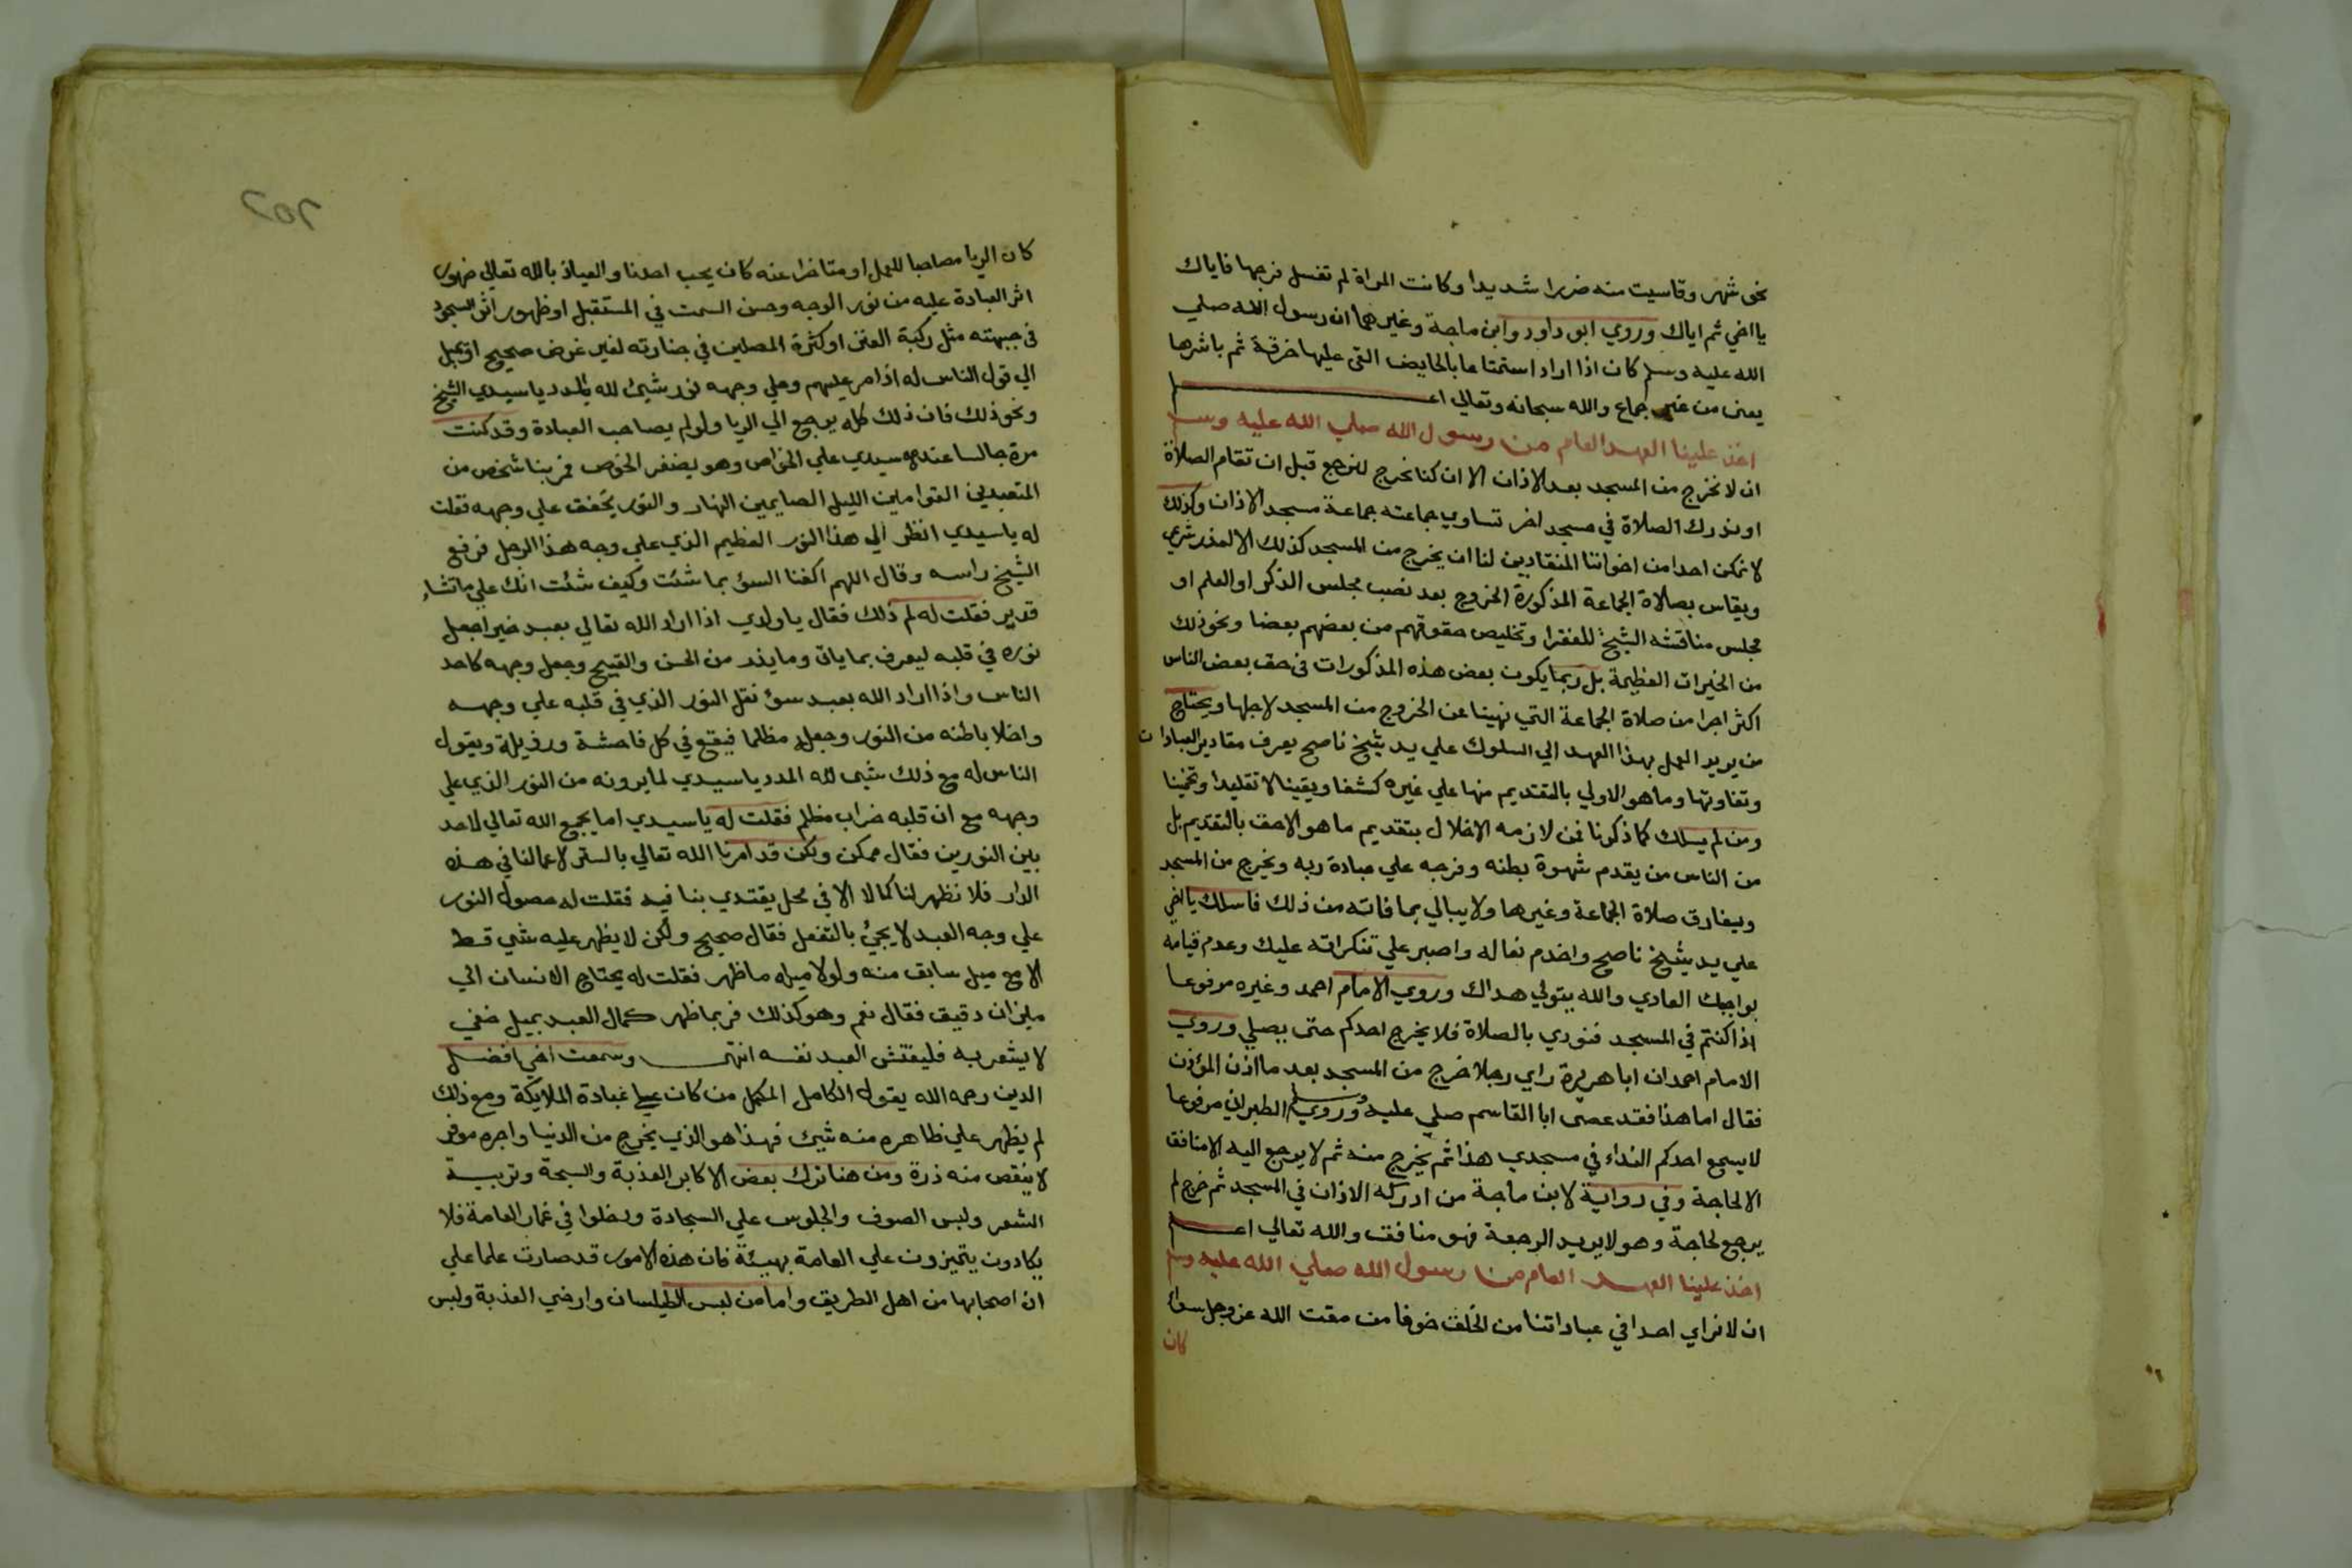 نحو شهر وقاسيت منه ضررا شديدا وكانت المراة لم تغسل فرجها فاياك
يا اخي ثم اياك وروي ابو داود وابن ماجة وغيرهما ان رسول الله صلي
الله عليه وسلم كان اذا اراد استمتاعا بالحايض القي عليها خرقة ثم باشرها
يعني من غير جماع والله سبحانه وتعالي اعلم
اخذ علينا العهد العام من رسول الله صلي الله عليه وسلم
ان لا نخرج من المسجد بعد الاذان الا ان كنا نخرج لنرجع قبل ان تقام الصلاة
او ندرك الصلاة في مسجد اخر تساوي جماعته جماعة مسجد الاذان وكذلك
لا نمكن احدا من اخواننا المنقادين لنا ان يخرج من المسجد كذلك الا لعذر شرعي
ويقاس بصلاة الجماعة المذكورة الخروج بعد نصب مجلس الذكر او العلم او
مجلس مناقشه الشيخ للفقرا وتخليص حقوقهم من بعضهم بعضا ونحو ذلك
من الخيرات العظيمة بل ربما يكون بعض هذه المذكورات في حق بعض الناس
اكثر اجرا من صلاة الجماعة التي نهينا عن الخروج من المسجد لاجلها ويحتاج
من يريد العمل بهذا العهد الي السلوك علي يد شيخ ناصح يعرف مقادير العبادات
وتفاوتها وما هو الاولي بالتقديم منها علي غيره كشفا ويقينا لا تقليدا وتخمينا
ومن لم يسلك كما ذكرنا فمن لازمه الاخلال بتقديم ما هو الاحق بالتقديم بل
من الناس من يقدم شهوة بطنه وفرجه علي عبادة ربه ويخرج من المسجد
ويفارق صلاة الجماعة وغيرها ولا يبالي بما فاته من ذلك فاسلك يا اخي
علي يد شيخ ناصح واخدم نعاله واصبر علي تنكراته عليك وعدم قيامه
بواجبك العادي والله يتولي هداك وروي الامام احمد وغيره مرفوعا
اذا كنتم في المسجد فنودي بالصلاة فلا يخرج احدكم حتي يصلي وروي
الامام احمد ان ابا هريرة راي رجلا خرج من المسجد بعد ما اذن المؤذن
فقال اما هذا فقد عصي ابا القاسم صلي عليه وسلم وروي الطبراني مرفوعا
لا يسمع احدكم النداء في مسجدي هذا ثم يخرج منه ثم لا يرجع اليه الا منافق
الا لحاجة وفي رواية لابن ماجة من ادركه الاذان في المسجد ثم خرج لم
يرجع لحاجة وهو لا يريد الرجعة فهو منافق والله تعالي اعلم
اخذ علينا العهد العام من رسول الله صلي الله عليه وسلم
ان لا نراي احدا في عباداتنا من الخلق خوفا من مقت الله عز وجل سواء
كان
202
كان الريا مصاحبا للعمل او متاخرا عنه كان يحب احدنا والعياذ بالله تعالي ظهور
اثر العبادة عليه من نور الوجه وحسن السمت في المستقبل او ظهور اثر السجود
في جبهته مثل ركبة العنز او كثرة المصلين في جنازته لغير غرض صحيح او يميل
الي قول الناس له اذا مر عليهم وعلي وجهه نور شيئ لله المدد يا سيدي الشيخ
ونحو ذلك فان ذلك كله يرجع الي الريا ولو لم يصاحب العبادة وقد كنت
مرة جالسا عند سيدي علي الخواص وهو يضفر الخوص فمر بنا شخص من
المتعبدين القوامين الليل الصايمين النهار والنور يخفق علي وجهه فقلت
له يا سيدي انظر الي هذا النور العظيم الذي علي وجه هذا الرجل فرفع
الشيخ راسه وقال اللهم اكفنا السؤ بما شئت وكيف شئت انك علي ما تشاء
قدير فقلت له لم ذلك فقال يا ولدي اذا اراد الله تعالي بعبد خيرا جعل
نوره في قلبه ليعرف بما ياتي وما يذر من الحسن والقبيح وجعل وجهه كاحد
الناس واذا اراد الله بعبد سؤ نقل النور الذي في قلبه علي وجهه
واخلا باطنه من النور وجعله مظلما فيقع في كل فاحشة ورذيلة ويقول
الناس له مع ذلك شي لله المدد يا سيدي لما يرونه من النور الذي علي
وجهه مع ان قلبه خراب مظلم فقلت له يا سيدي اما يجمع الله تعالي لاحد
بين النورين فقال ممكن ولكن قد امرنا الله تعالي بالستر لاعمالنا في هذه
الدار فلا نظهر لنا كمالا الا في محل يقتدي بنا فيه فقلت له حصول النور
علي وجه العبد لا يجئ بالتفعل فقال صحيح ولكن لا يظهر عليه شي قط
الا مع ميل سابق منه ولولا ميله ما ظهر فقلت له يحتاج الانسان الي
ميزان دقيق فقال نعم وهو كذلك فربما ظهر كمال العبد بميل خفي
لا يشعر به فليفتش العبد نفسه انتهي وسمعت اخي افضل
الدين رحمه الله يقول الكامل المكمل من كان علي عبادة الملايكة ومع ذلك
لم يظهر علي ظاهره منه شيئ فهذا هو الذي يخرج من الدنيا واجره موفر
لا ينقص منه ذرة ومن هنا ترك بعض الاكابر العذبة والسبحة وتربية
الشعر ولبس الصوف والجلوس علي السجادة ودخلوا في غمار العامة فلا
يكادون يتميزون علي العامة بهيئة فان هذه الامور قد صارت علما علي
ان اصحابها من اهل الطريق واما من لبس الطيلسان وارخي العذبة ولبس